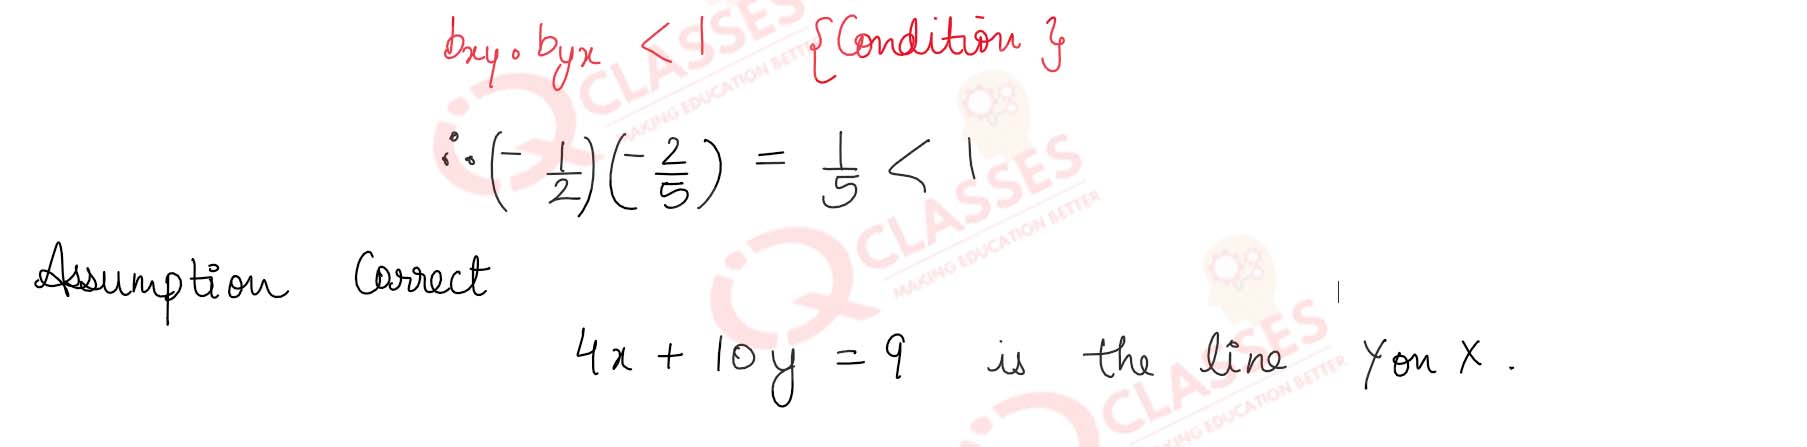 bxy . byx < 1 {Condition}
∴ (- 1/2) (- 2/5) = 1/5 < 1
Assumption Correct
4x + 10y = 9 is the line Y on X.
CLASSES
MAKING EDUCATION BETTER
CLASSES
MAKING EDUCATION BETTER
CLASSES
MAKING EDUCATION BETTER